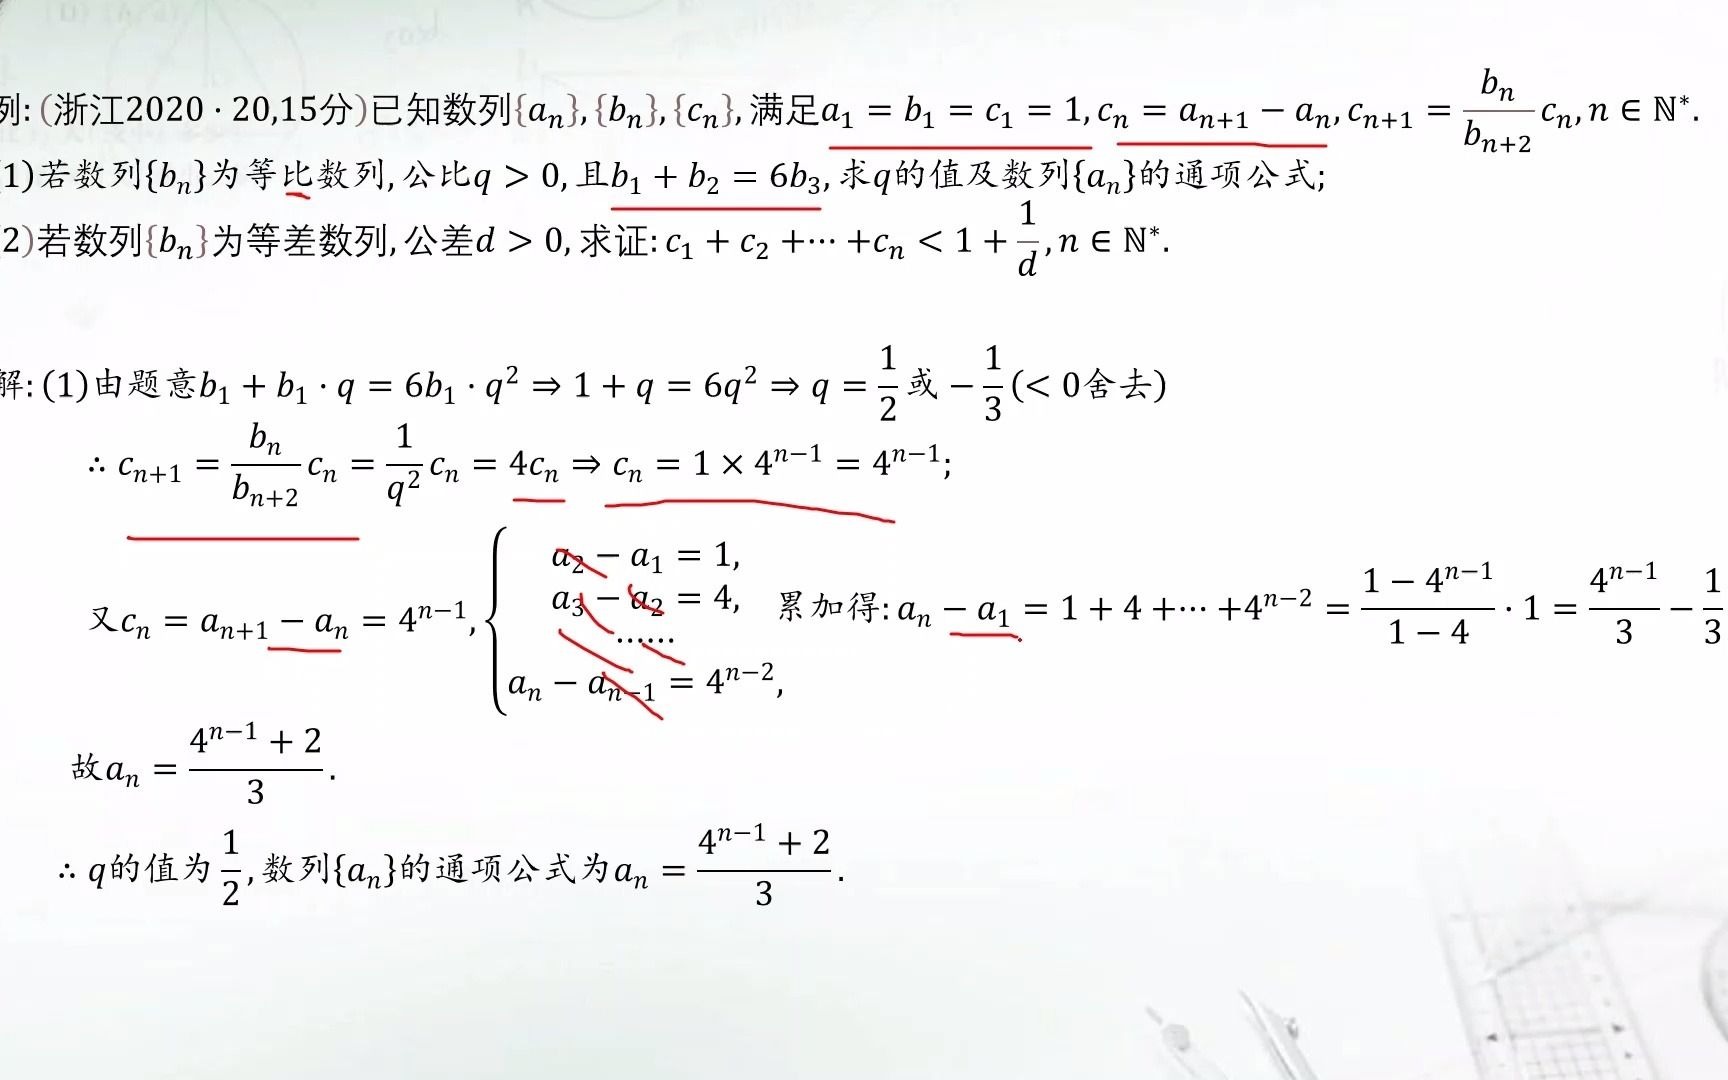 例: (浙江2020 · 20,15分)已知数列{aₙ}, {bₙ}, {cₙ}, 满足a₁ = b₁ = c₁ = 1, cₙ = aₙ₊₁ − aₙ, cₙ₊₁ = bₙ/bₙ₊₂ cₙ, n ∈ ℕ*.
1)若数列{bₙ}为等比数列, 公比q > 0, 且b₁ + b₂ = 6b₃, 求q的值及数列{aₙ}的通项公式;
2)若数列{bₙ}为等差数列, 公差d > 0, 求证: c₁ + c₂ +⋯ +cₙ < 1 + 1/d, n ∈ ℕ*.
解: (1)由题意b₁ + b₁ · q = 6b₁ · q² ⇒ 1 + q = 6q² ⇒ q = 1/2 或 − 1/3 (< 0舍去)
∴ cₙ₊₁ = bₙ/bₙ₊₂ cₙ = 1/q² cₙ = 4cₙ ⇒ cₙ = 1 × 4ⁿ⁻¹ = 4ⁿ⁻¹;
又cₙ = aₙ₊₁ − aₙ = 4ⁿ⁻¹, {
a₂ − a₁ = 1,
a₃ − a₂ = 4,
⋯⋯
aₙ − aₙ₋₁ = 4ⁿ⁻²,
累加得: aₙ − a₁ = 1 + 4 +⋯ +4ⁿ⁻² = (1 − 4ⁿ⁻¹)/(1 − 4) · 1 = 4ⁿ⁻¹/3 − 1/3
故aₙ = (4ⁿ⁻¹ + 2)/3 .
∴ q的值为 1/2 , 数列{aₙ}的通项公式为aₙ = (4ⁿ⁻¹ + 2)/3 .